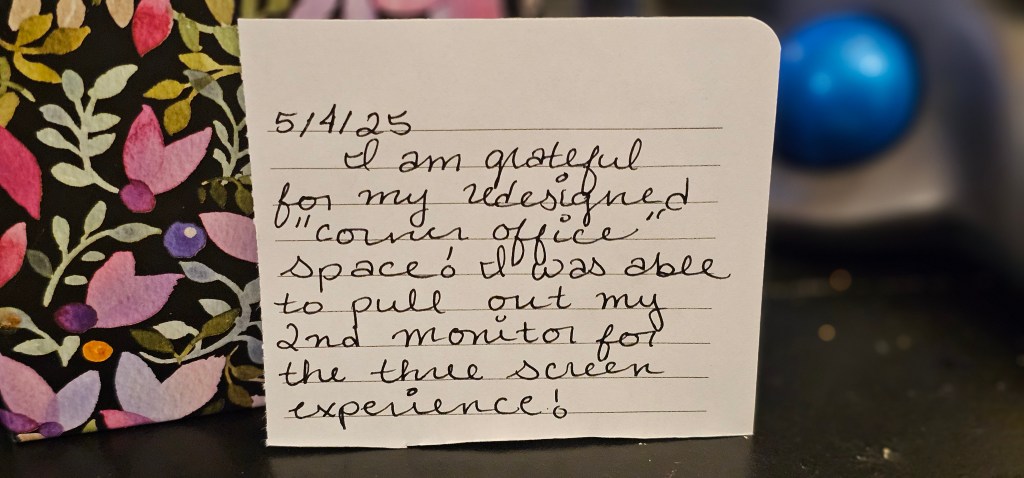 5/4/25
I am grateful
for my redesigned
"corner office"
space! I was able
to pull out my
2nd monitor for
the three screen
experience!